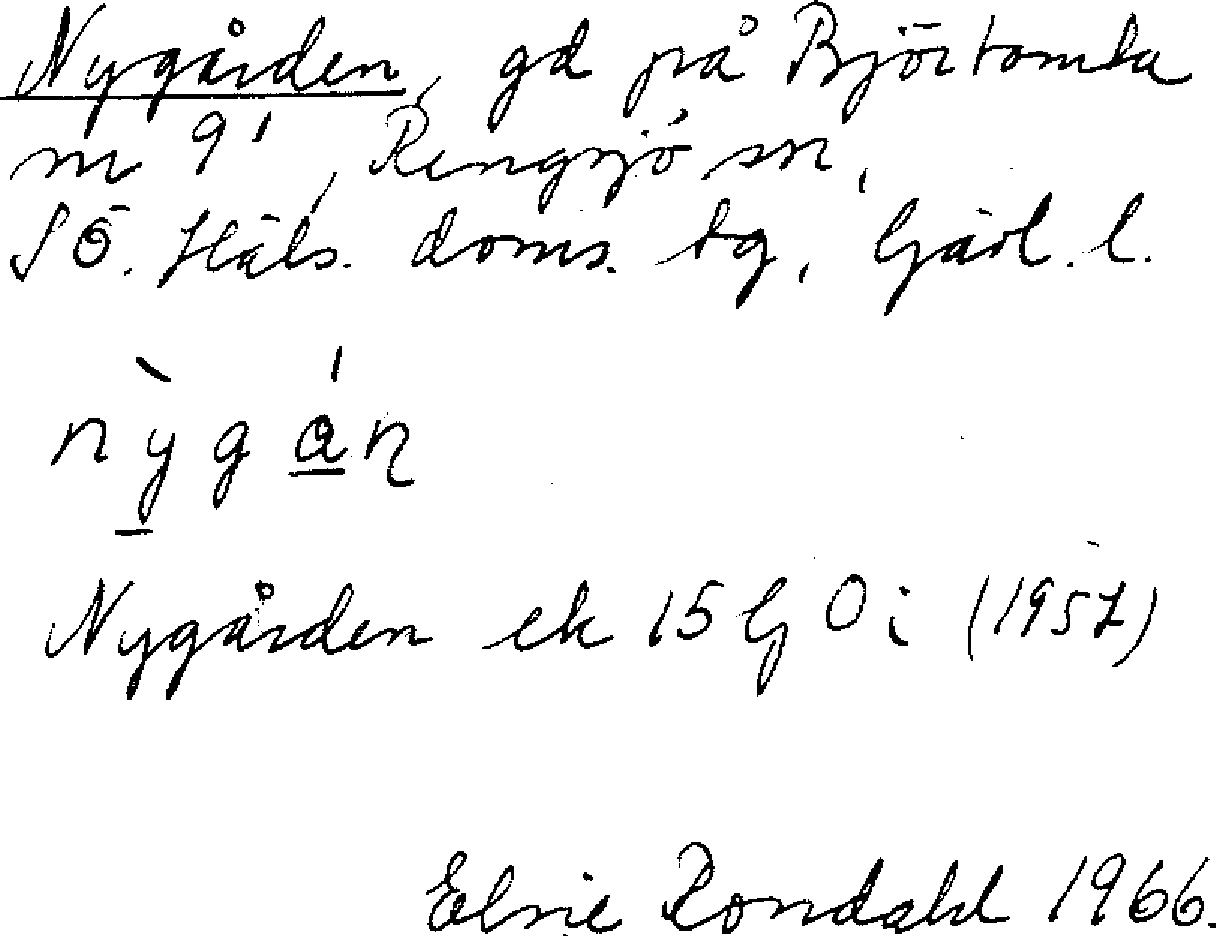 Nygården, gd på Björtomta
m 9¹, Rengsjö sn,
SÖ. Häls. doms. tg, Gävl. l.
nỳgán
Nygården ek 15 G 0 i (1957)
Elsie Rondahl 1966.